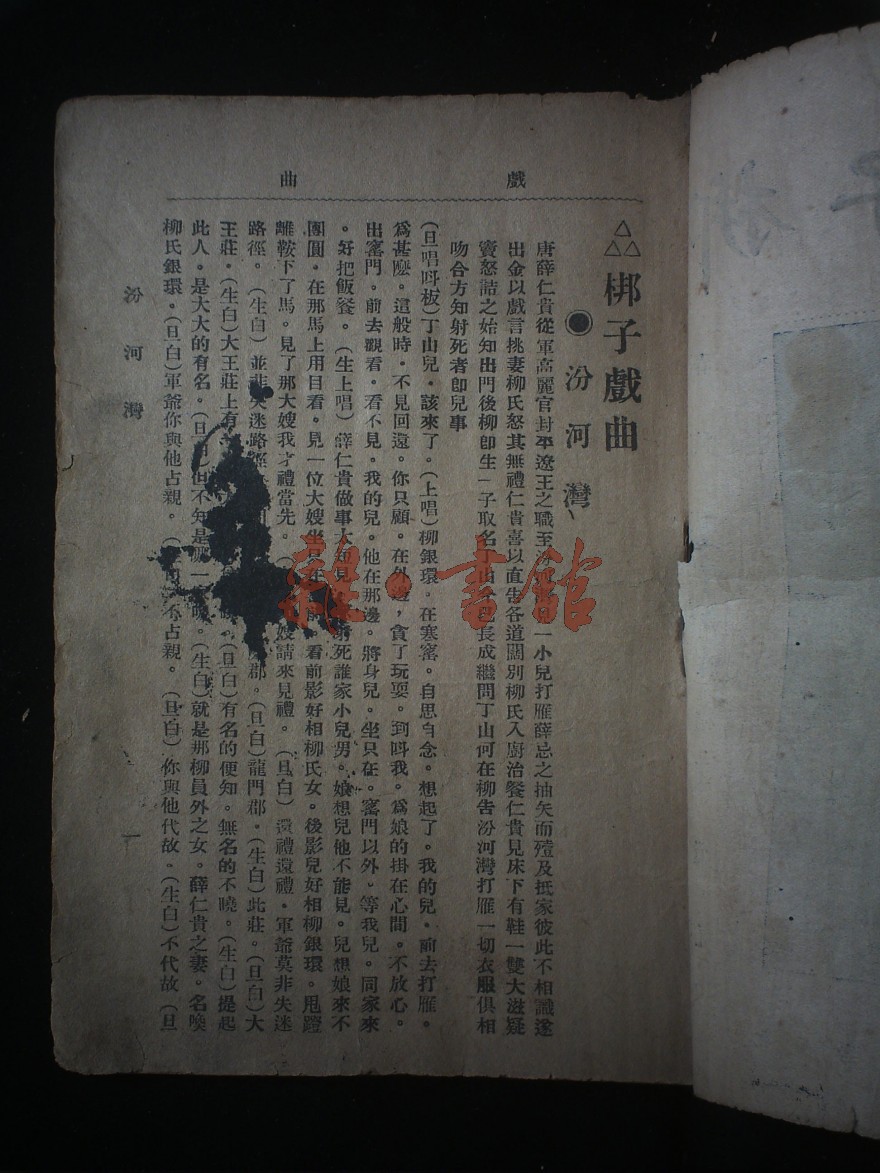 戲曲
梆子戲曲
汾河灣
唐薛仁貴從軍高麗官封平遼王之職至 一小兒打雁薛忌之抽矢而殪及抵家彼此不相識遂
出金以戲言挑妻柳氏怒其無禮仁貴喜以直告各道闊別柳氏入廚治餐仁貴見床下有鞋一雙大滋疑
竇怒詰之始知出門後柳卽生一子取名丁山 已長成繼問丁山何在柳告汾河灣打雁一切衣服俱相
吻合方知射死者卽兒事
(旦唱呌板)丁山兒。該來了。(上唱)柳銀環。在寒窰。自思自念。想起了。我的兒。前去打雁。
爲甚麼。這般時。不見回還。你只顧。在外邊,貪了玩耍。到呌我。爲娘的掛在心間。不放心。
出窰門。前去觀看。看不見。我的兒。他在那邊。將身兒。坐只在。窰門以外。等我兒。同家來
。好把飯餐。(生上唱)薛仁貴做事太 見 射死誰家小兒男。娘想兒他不能見。兒想娘來不
團圓。在那馬上用目看。見一位大嫂坐只在 前。看前影好相柳氏女。後影兒好相柳銀環。甩蹬
離鞍下了馬。見了那大嫂我才禮當先。 嫂請來見禮。(旦白)還禮還禮。軍爺莫非失迷
路徑。(生白)並非失迷路徑 郡。(旦白)龍門郡。(生白)此莊。(旦白)大
王莊。(生白)大王莊上有 (旦白)有名的便知。無名的不曉。(生白)提起
此人。是大大的有名。(旦白)但不知是哪一 (生白)就是那柳員外之女。薛仁貴之妻。名喚
柳氏銀環。(旦白)軍爺你與他占親。 不占親。(旦白)你與他代故。(生白)不代故(旦
汾河灣
一
雜·書館